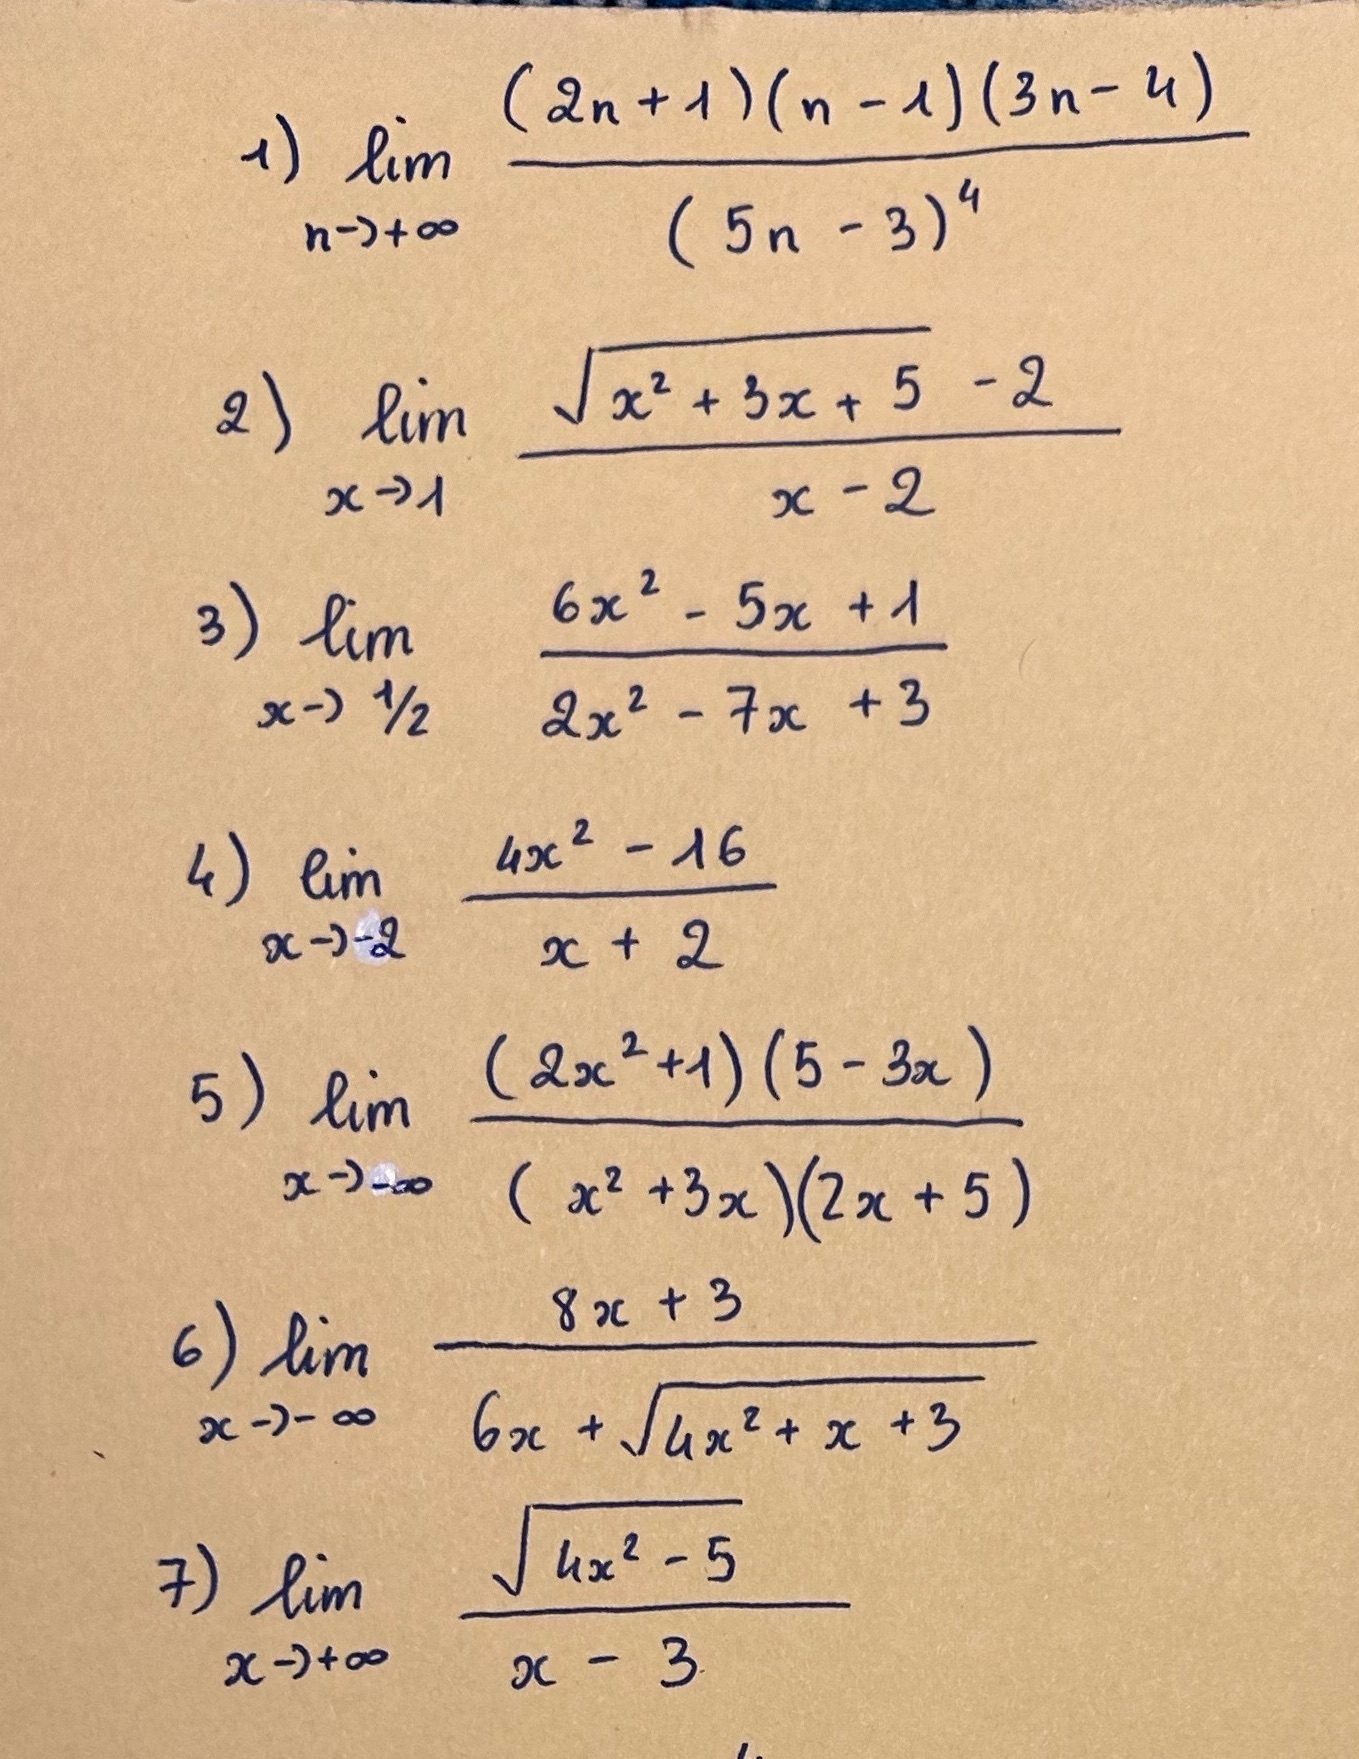 1) lim n→+∞ (2n+1)(n-1)(3n-4) / (5n-3)⁴
2) lim x→1 (√(x²+3x+5) -2) / (x-2)
3) lim x→1/2 (6x²-5x+1) / (2x²-7x+3)
4) lim x→-2 (4x²-16) / (x+2)
5) lim x→-∞ (2x²+1)(5-3x) / (x²+3x)(2x+5)
6) lim x→-∞ (8x+3) / (6x+√(4x²+x+3))
7) lim x→+∞ √(4x²-5) / (x-3)